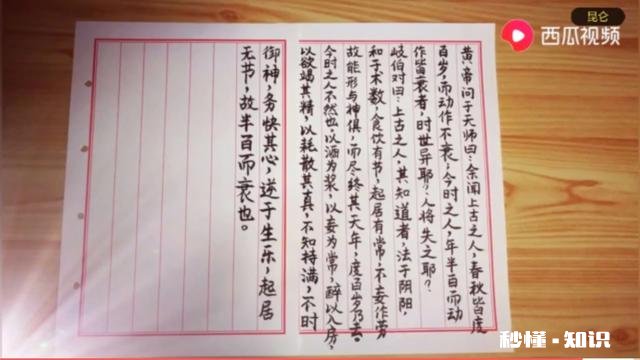 昆仑
西瓜视频
黄帝问于天师曰：余闻上古之人，春秋皆度
百岁，而动作不衰；今时之人，年半百而动
作皆衰者，时世异耶？人将失之耶？
岐伯对曰：上古之人，其知道者，法于阴阳，
和于术数，食饮有节，起居有常，不妄作劳，
故能形与神俱，而尽终其天年，度百岁乃去。
今时之人不然也，以酒为浆，以妄为常，醉以入房，
以欲竭其精，以耗散其真，不知持满，不时
御神，务快其心，逆于生乐，起居
无节，故半百而衰也。
秒懂·知识